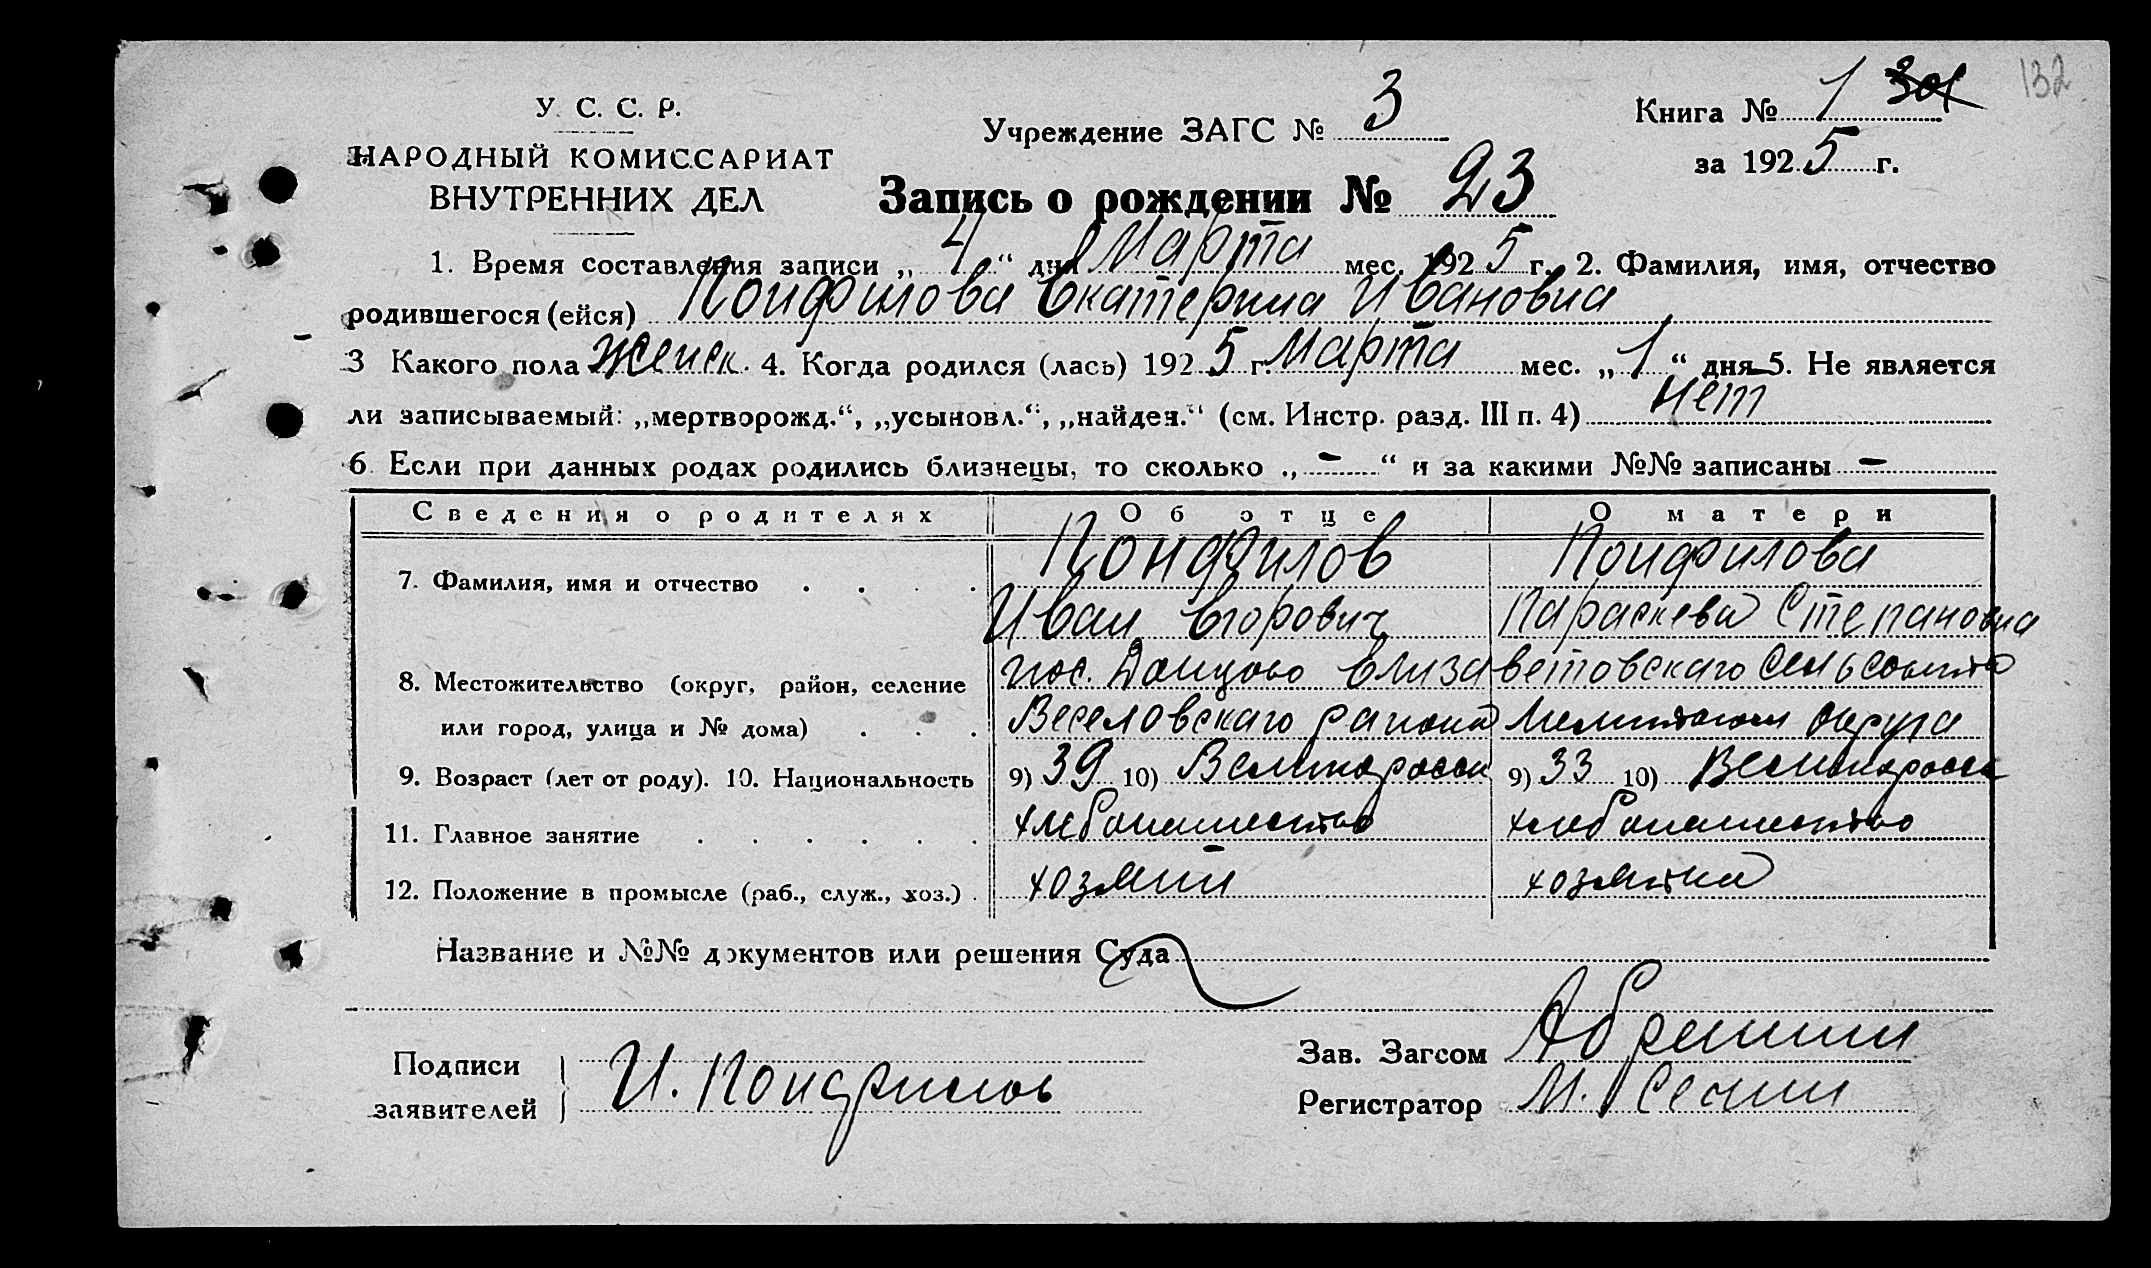 132
У. С. С. Р.
НАРОДНЫЙ КОМИССАРИАТ
ВНУТРЕННИХ ДЕЛ
Учреждение ЗАГС № 3
Книга № 1
за 1925 г.
Запись о рождении № 23
1. Время составления записи „ 4 “ дня Марта мес. 1925 г. 2. Фамилия, имя, отчество
родившегося (ейся) Понфилова Екатерина Ивановна
3 Какого пола женск. 4. Когда родился (лась) 1925 г. Марта мес. „ 1 “ дня 5. Не является
ли записываемый: „мертворожд.“, „усыновл.“, „найден.“ (см. Инстр. разд. III п. 4) нет
6 Если при данных родах родились близнецы, то сколько „ – “ и за какими №№ записаны –
Сведения о родителях Об отце О матери
7. Фамилия, имя и отчество . . . . Понфилов Понфилова
Иван Егорович Параскева Степановна
8. Местожительство (округ, район, селение пос. Донцово Елизаветовскаго сельсовета
или город, улица и № дома) . . . Веселовскаго района Мелитоп Округа
9. Возраст (лет от роду). 10. Национальность 9) 39 10) Великоросси 9) 33 10) Великоросс
11. Главное занятие . . . . . . хлебопашество хлебопашество
12. Положение в промысле (раб., служ., хоз.) . хозяин хозяйка
Название и №№ документов или решения Суда
Подписи
заявителей И. Понфилов
Зав. Загсом
Регистратор М.